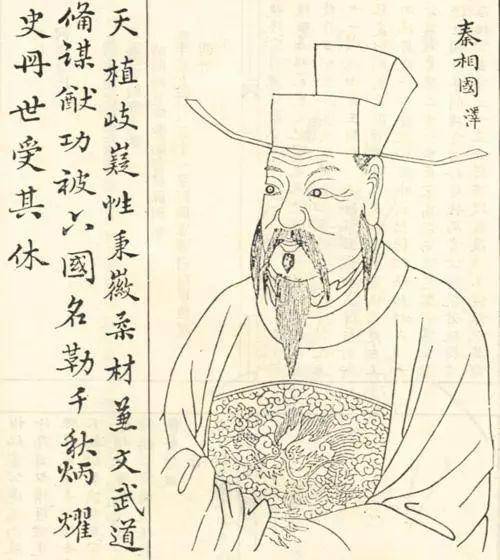 秦相國澤
天植岐嶷性秉徽柔材兼文武道
備謀猷功被六國名勒千秋炳耀
史冊世受其休